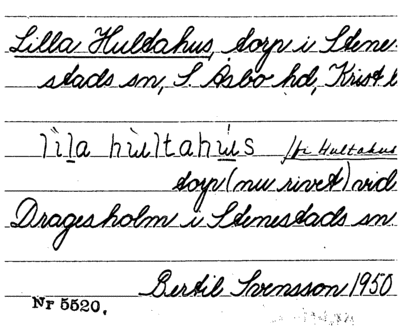 Lilla Hultahus, torp i Stene-
stads sn, S. Åsbo hd, Krist l
lìla hùltahùs /fr Hultahus
torp (nu rivet) vid
Dragesholm i Stenestads sn
Bertil Svensson 1950
Nr 5520.